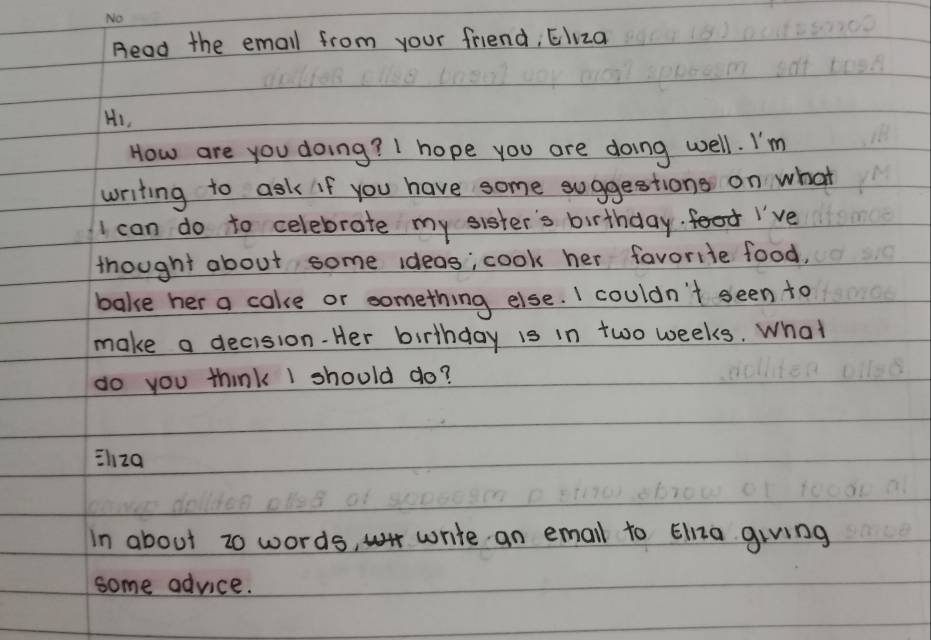 No
Read the email from your friend, Eliza
Hi,
How are you doing? I hope you are doing well. I'm
writing to ask if you have some suggestions on what
I can do to celebrate my sister's birthday. food I've
thought about some ideas; cook her favorite food,
bake her a cake or something else. I couldn't seen to
make a decision. Her birthday is in two weeks. What
do you think I should do?
Eliza
In about 20 words, write an email to Eliza giving
some advice.